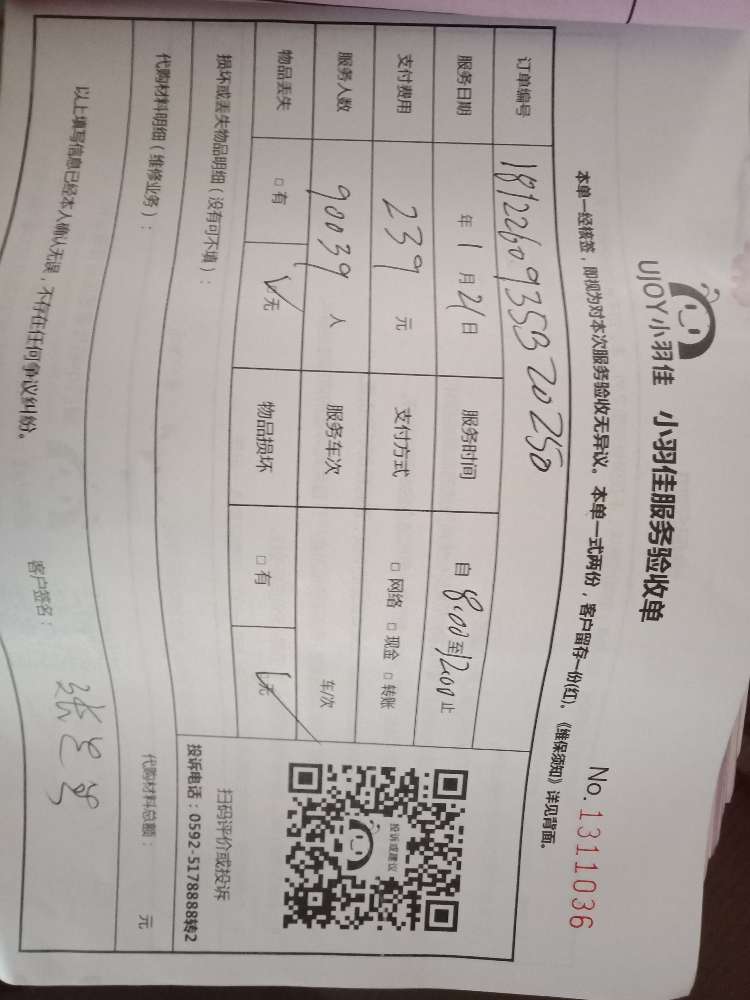 UJOY小羽佳 小羽佳服务验收单
No.1311036
本单一经核签，即视为对本次服务验收无异议。本单一式两份，客户留存一份(红)。《维保须知》详见背面。
订单编号 1812260935320250
服务日期 年 1 月 21 日 服务时间 自 8:00 至 12:00 止
支付费用 239 元 支付方式 □ 网络 □ 现金 □ 转账
服务人数 90039 人 服务车次 车/次
物品丢失 □ 有 □ 无 物品损坏 □ 有 □ 无
投诉或建议
扫码评价或投诉
投诉电话：0592-5178888转2
损坏或丢失物品明细（没有可不填）：
代购材料明细（维修业务）： 代购材料总额： 元
以上填写信息已经本人确认无误，不存在任何争议纠纷。 客户签名：